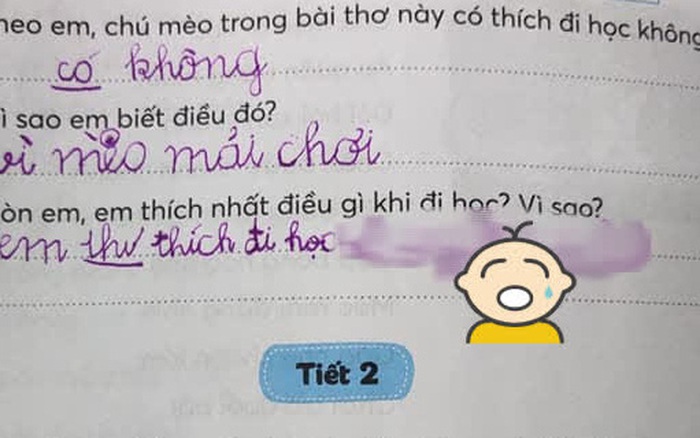 heo em, chú mèo trong bài thơ này có thích đi học không
có không
ì sao em biết điều đó?
vì mèo mải chơi
òn em, em thích nhất điều gì khi đi học? Vì sao?
em thư thích đi học
Tiết 2